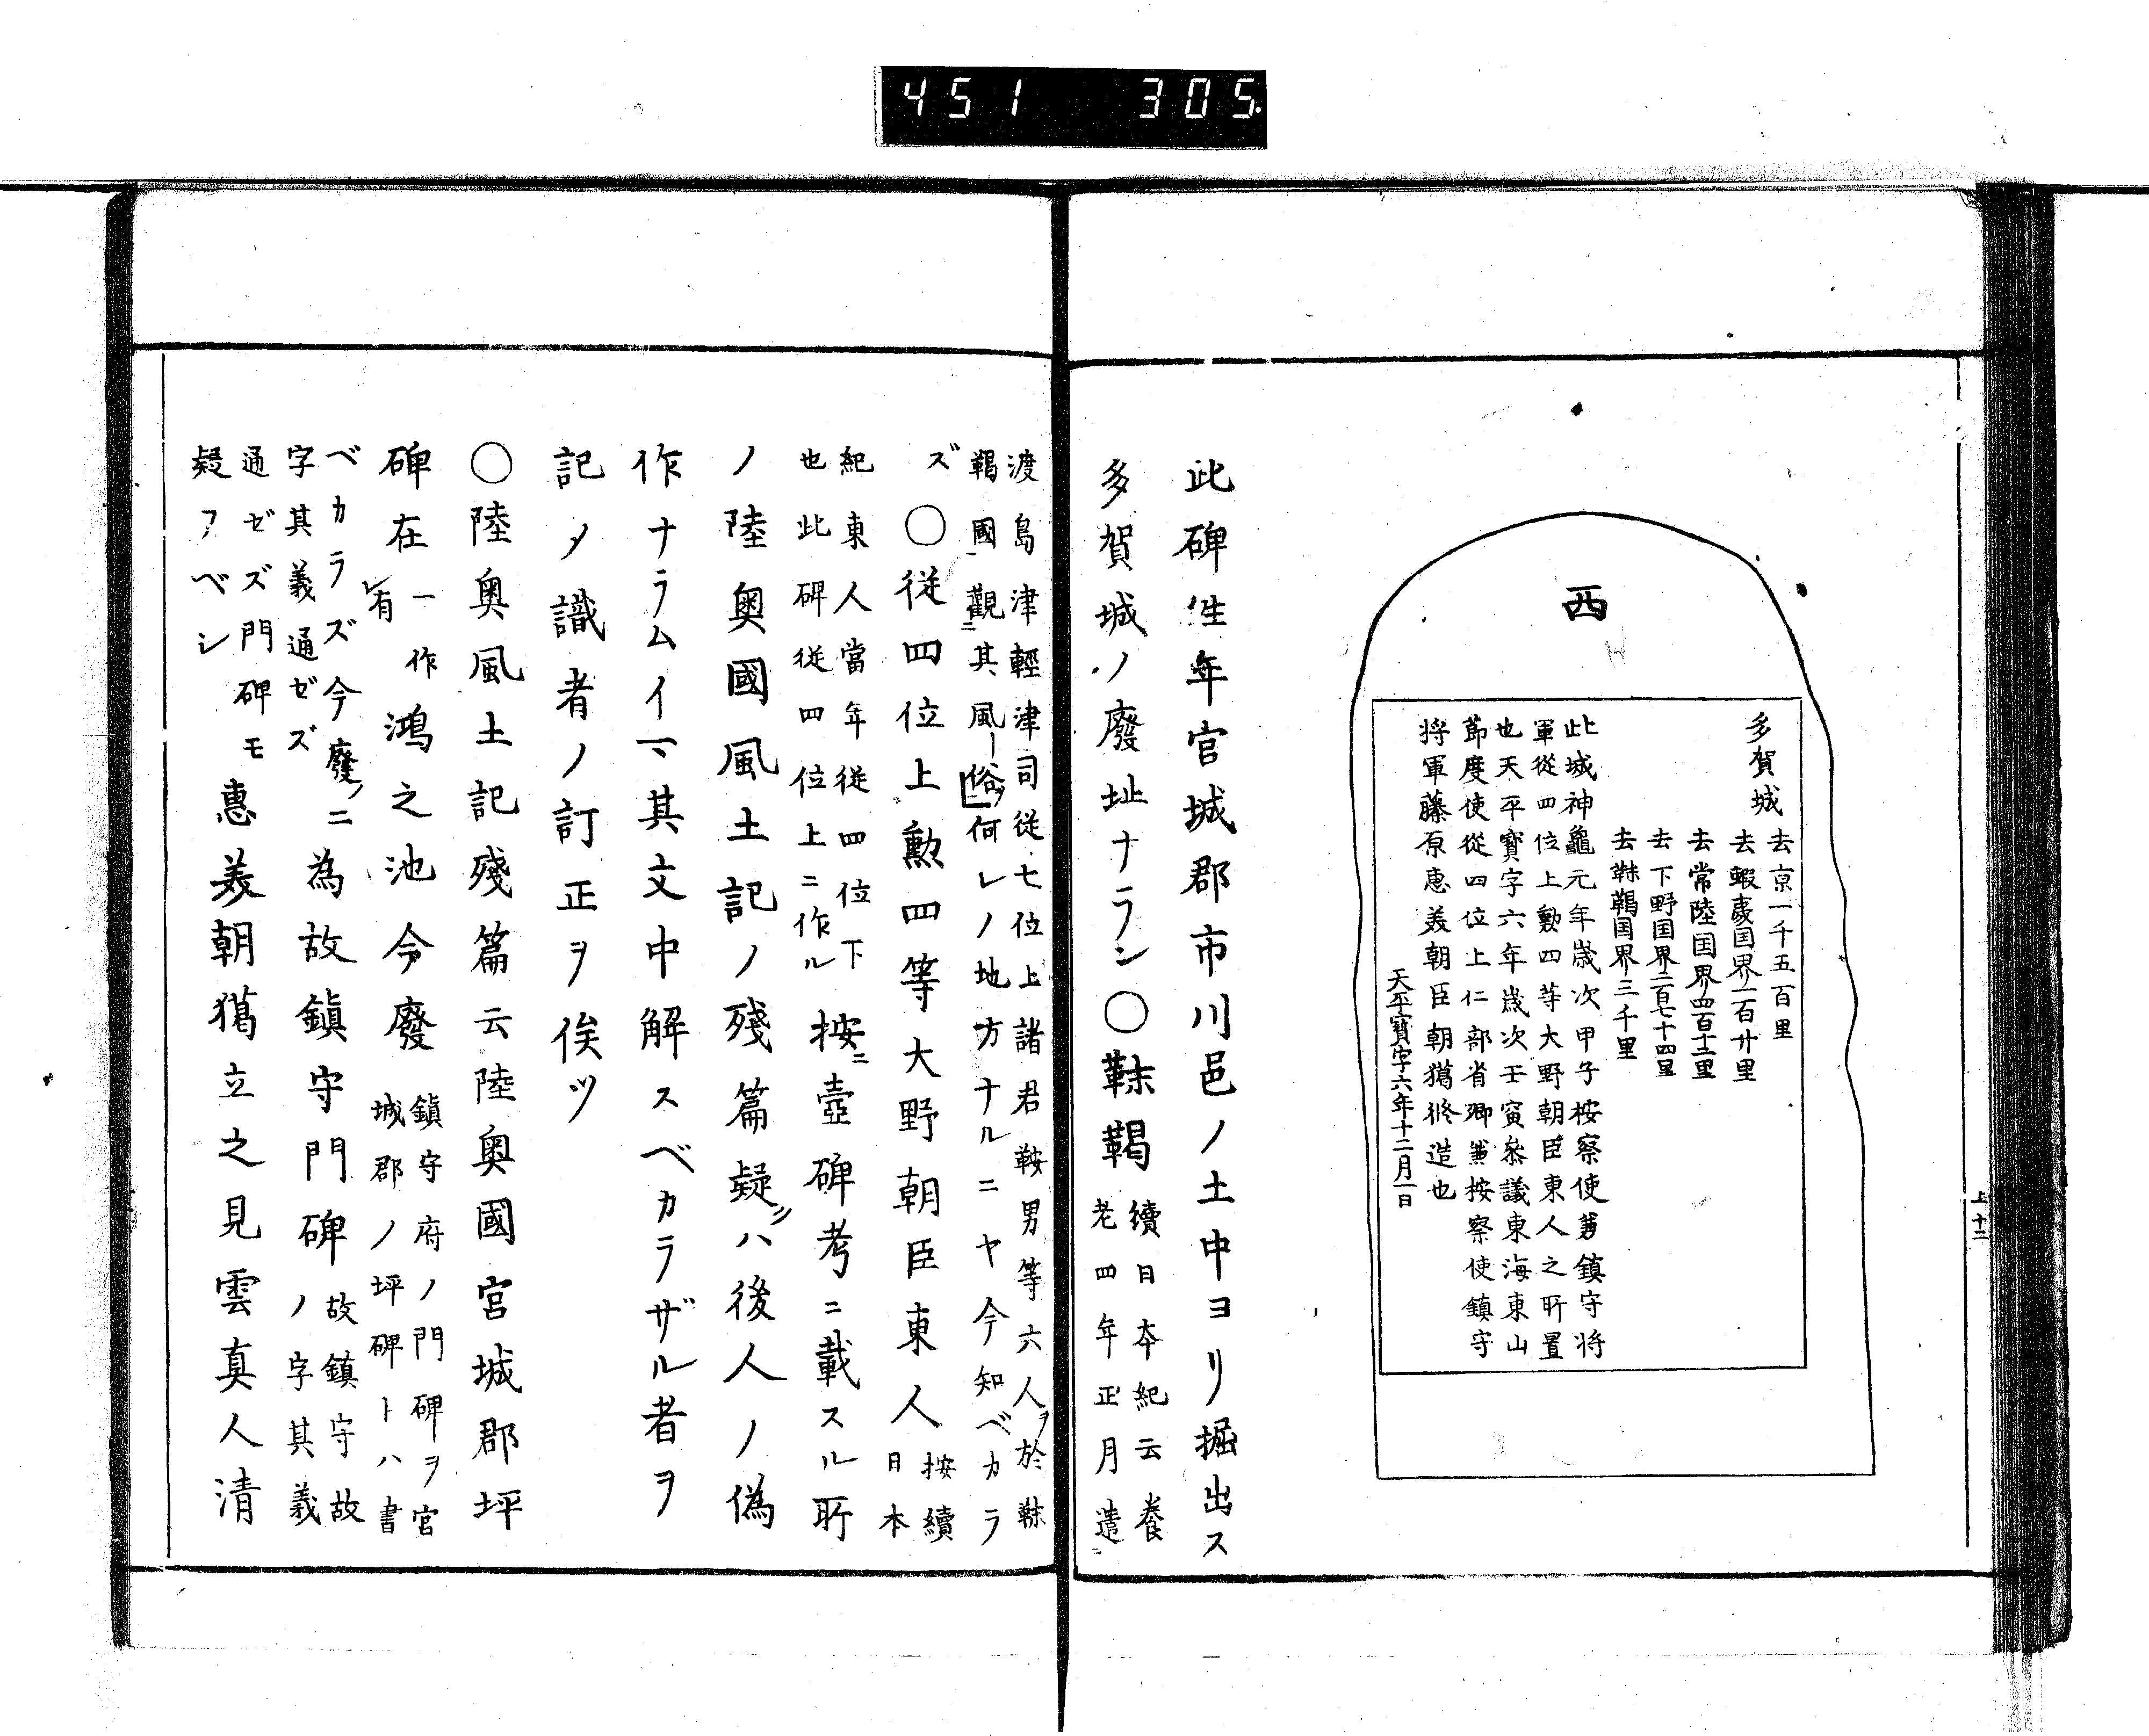 451 305
西
多賀城
去京一千五百里
去蝦夷国界一百廿里
去常陸国界四百十二里
去下野国界二百七十四里
去靺鞨国界三千里
此城神龜元年歳次甲子桉察使兼鎮守将
軍從四位上勲四等大野朝臣東人之所置
也天平寳字六年歳次壬寅叅議東海東山
節度使從四位上仁部省卿兼桉察使鎮守
将軍藤原惠美朝臣朝獦修造也
天平寳字六年十二月一日
此碑徃年宮城郡市川邑ノ土中ヨリ掘出ス
多賀城ノ廢址ナラン〇靺鞨
續日本紀云養
老四年正月遣
上十三
渡島津輕津司從七位上諸君鞍男等六人ヲ於靺
鞨國ニ觀其風俗ヲ何レノ地方ナルニヤ今知ベカラ
ズ
〇從四位上勲四等大野朝臣東人
按續
日本
紀東人當年從四位下
也此碑從四位上ニ作ル
按ニ壺碑考ニ載スル所
ノ陸奥國風土記ノ殘篇疑ハ後人ノ偽
作ナラムイ其文中解スベカラザル者ヲ
記ソ識者ノ訂正ヲ俟ツ
〇陸奥風土記殘篇云陸奥國宮城郡坪
碑在
一作
有
鴻之池今廢
鎮守府ノ門碑ヲ宮
城郡ノ坪碑トハ書
ベカラズ今廢ノ二
字其義通ゼズ
為故鎮守門碑
故鎮守故
ノ字其義
通ゼズ門碑モ
疑フベシ
惠美朝獦立之見雲真人清